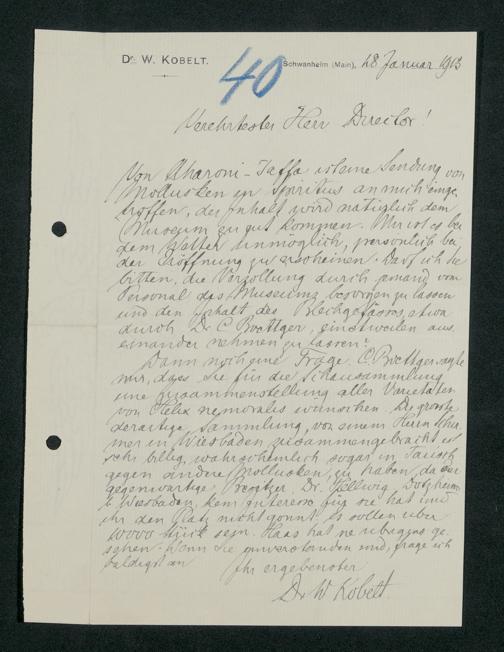 Dr. W. KOBELT.
40
Schwanheim (Main), 28 Januar 1913
Verehrtester Herr Director!
Von Aharoni-Jaffa ist eine Sendung von
Mollusken in Spiritus an mich einge
troffen, der Inhalt wird natürlich dem
Museum zu gut kommen. Mir ist es bei
dem Wetter unmöglich, persönlich bei
der Eröffnung zu erscheinen. Darf ich Sie
bitten, die Verzollung durch jemand vom
Personal des Museums besorgen zu lassen
und den Inhalt des Blechgefässes, etwa
durch Dr C Boettger, einstweilen aus
einander nehmen zu lassen?
Dann noch eine Frage. C. Boettger sagte
mir, dass Sie für die Schausammlung
eine Zusammenstellung aller Varietäten
von Helix nemoralis wünschen. Die grosste
derartige Sammlung, von einem Herrn
in Wiesbaden zusammengebracht ist
sehr billig, wahrscheinlich sogar in Tausch
gegen andere Mollusken, zu haben, da der
gegenwärtige Besitzer Dr. Hellwig Dotzheim
b. Wiesbaden, kein Interesse für sie hat und
ihr den Platz nicht gonnt. Es sollen über
10000 Stück sein. Haas hat sie ubrigens ge
sehen. Wenn Sie einverstanden sind, frage ich
baldigst an Ihr ergebenster
Dr W Kobelt